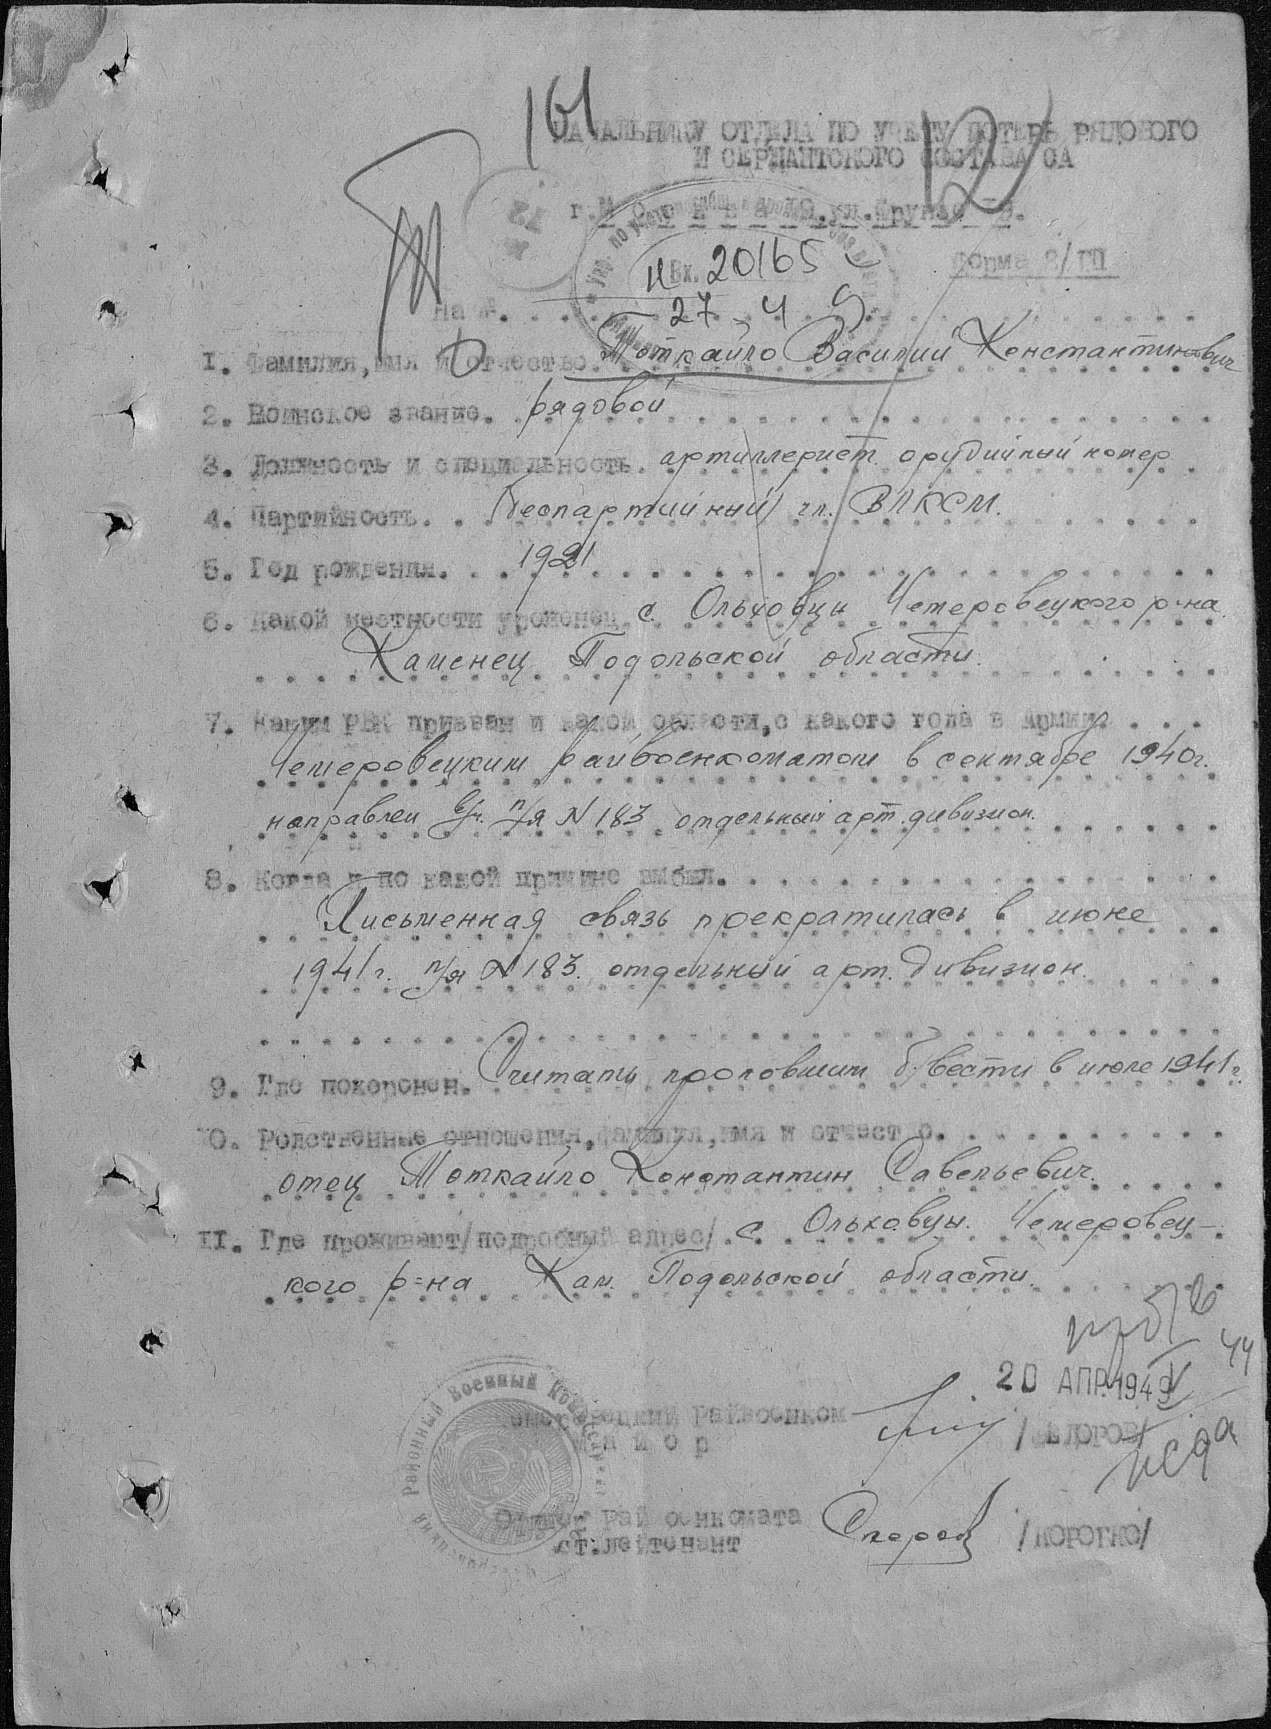 161
НАЧАЛЬНИКУ ОТДЕЛА ПО УЧЕТУ ПОТЕРЬ РЯДОВОГО
И СЕРЖАНТСКОГО СОСТАВА СА
г. М о с к в а 19, ул. Фрунзе 19.
Вх. 20165
форма 2/ПП
27 4 9
На №.
1. Фамилия, имя и отчество. Моткайло Василий Константинович
2. Воинское звание. рядовой
3. Должность и специальность. артиллерист орудийный номер
4. Партийность. беспартийный чл. ВЛКСМ.
5. Год рождения. 1921
6. Какой местности уроженец. с. Ольховцы Чемеровецкого р-на
Каменец Подольской области.
7. Каким РВК призван и какой области, с какого года в Армии.
Чемеровецким райвоенкоматом в сентябре 1940г.
направлен в/ч. п/я N 183 отдельный арт. дивизион.
8. Когда и по какой причине выбыл.
Письменная связь прекратилась в июне
1941 г. п/я N 183. отдельный арт. дивизион.
9. Где похоронен. Считать пропавшим б/вести в июле 1941 г.
10. Родственные отношения, фамилия, имя и отчество.
отец Моткайло Константин Савельевич.
11. Где проживает/подробный адрес/. с. Ольховцы. Чемеровец-
кого р-на Кам. Подольской области.
20 АПР. 1949
Чемеровецкий Райвоенком
м а й о р /ФЕДОРОВ/
Районный Военный Комиссариат
Райвоенкомата
ст. лейтенант /КОРОТКО/